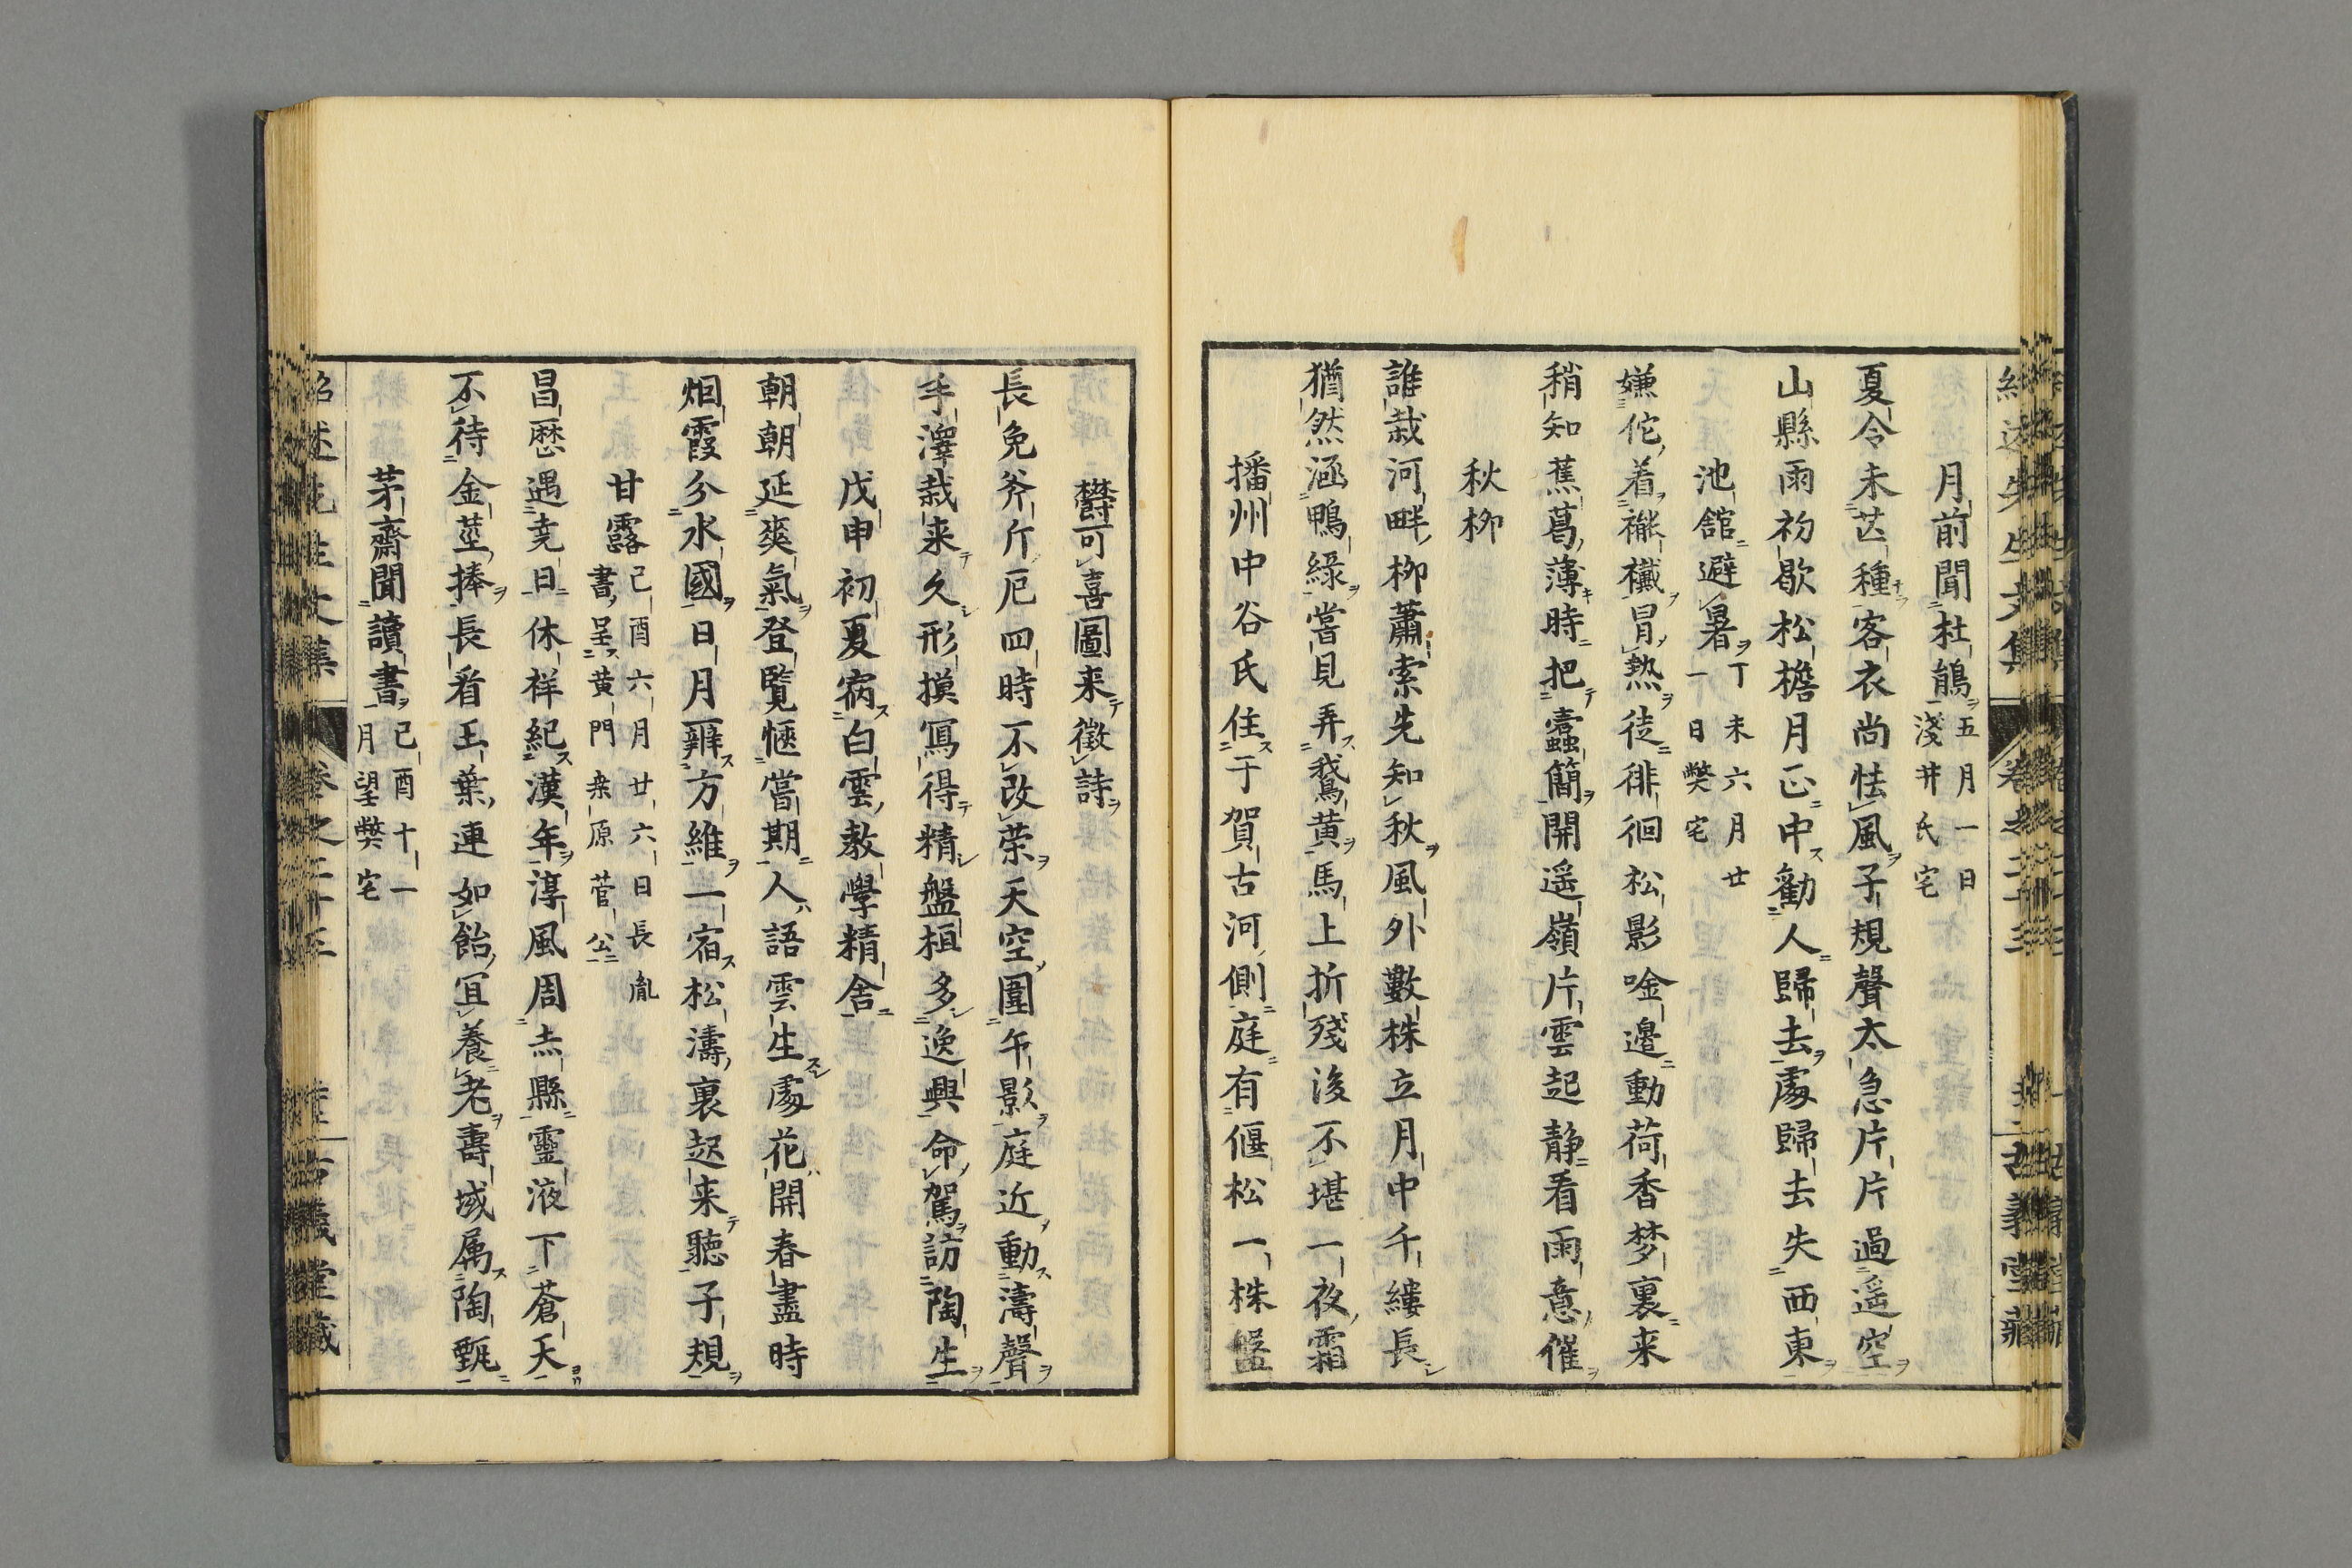 月前聞杜鵑 五月一日
淺井氏宅
夏令未芒種客衣尚怯風子規聲太急片片過遥空
山縣雨初歇松檐月正中勸人歸去處歸去失西東
池舘避暑 丁未六月廿
一日弊宅
嫌佗着襶冒熱徒徘徊松影唫邉動荷香梦裏来
稍知蕉葛薄時把蠹簡開遥嶺片雲起静看雨意催
秋栁
誰栽河畔栁蕭索先知秋風外數株立月中千縷長
猶然涵鴨綠嘗見弄鵞黄馬上折殘後不堪一夜霜
播州中谷氏住于賀古河側庭有偃松一株盤
欝可喜圖来徵詩
長免斧斤厄四時不改荣天空圍午影庭近動濤聲
手澤栽来久形摸冩得精盤桓多逸興命駕訪陶生
戊申初夏病白雲教學精舍
朝朝延爽氣登覧愜嘗期人語雲生處花開春盡時
烟霞分水國日月辨方維一宿松濤裏起来聽子規
甘露 己酉六月廿六日長胤
書呈黄門桒原菅公
昌厯遇尭日休祥紀漢年淳風周赤縣靈液下蒼天
不待金莖捧長看玉葉連如飴冝養老壽域属陶甄
茅齋聞讀書 己酉十一
月望弊宅